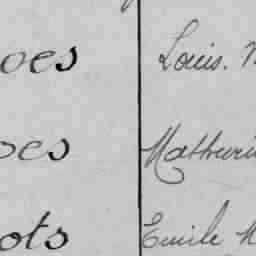 oes Louis. M
oes Mathurin
ots Emile M